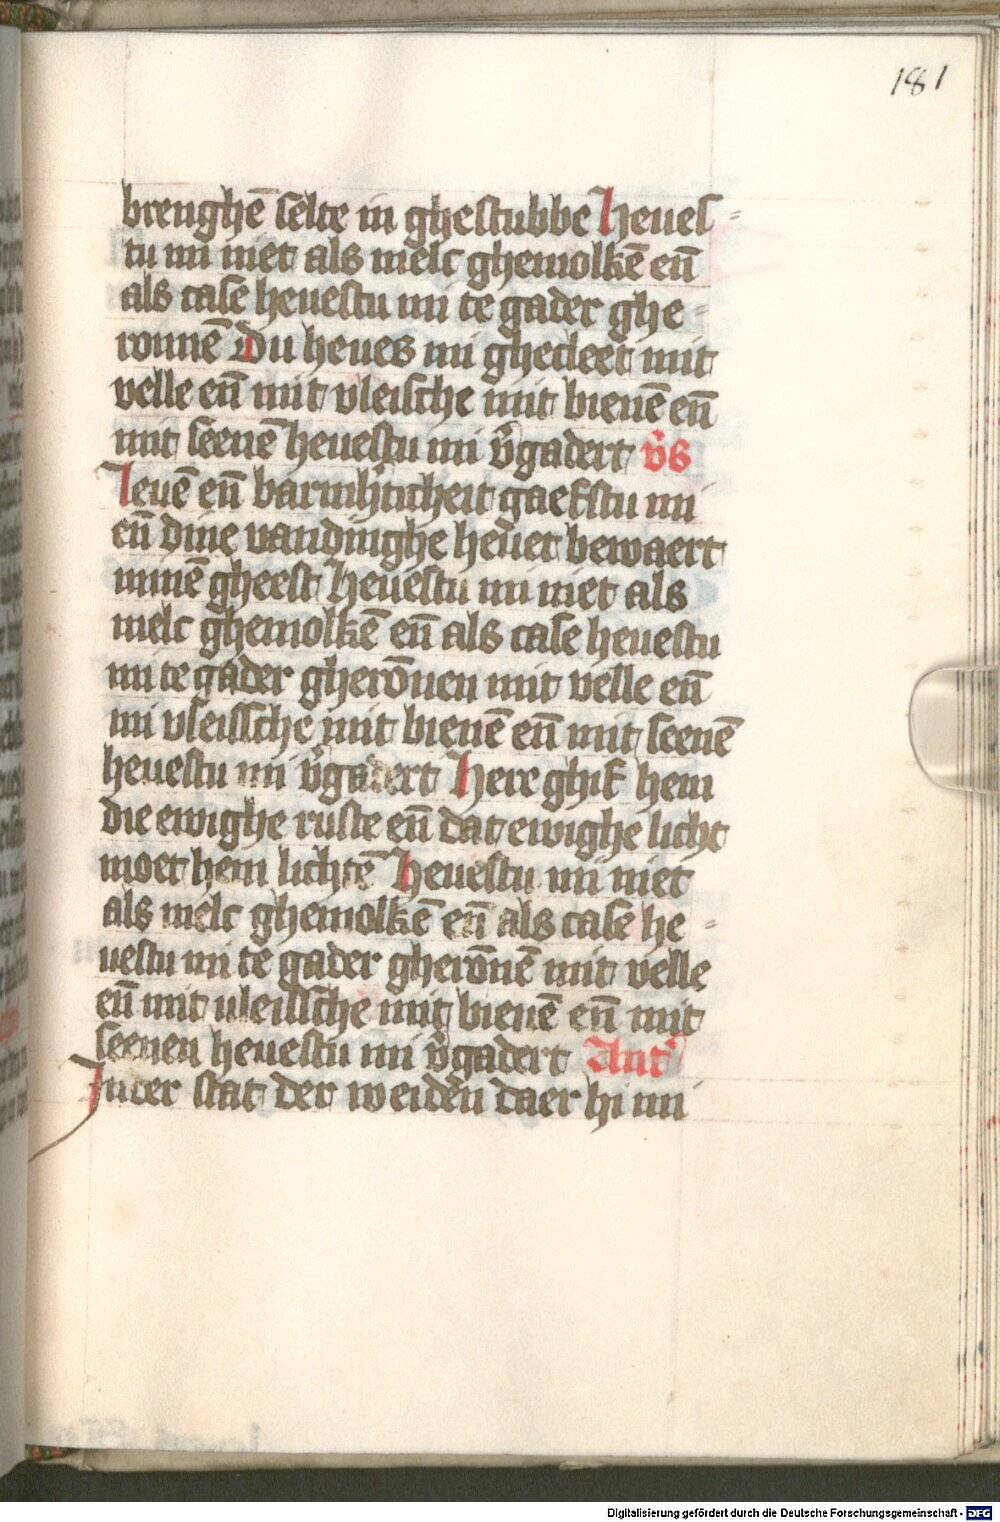 181
brenghē selte in ghestubbe Heues-
tu mi niet als melc ghemolkē eñ
als case heuestu mi te gader ghe-
ronnē Du heues mi ghecleet mit
velle eñ mit vleische mit bienē eñ
mit seenē heuestu mi v̾gadert v̾s
Leuē eñ barmh̾ticheit gaefstu mi
eñ dine vandinghe heuet bewaert
minē gheest Heuestu mi niet als
melc ghemolkē eñ als case heuestu
mi te gader gherōnen mit velle eñ
mi vleissche mit bienē eñ mit seenē
heuestu mi v̾gadert Here ghif hem
die ewighe ruste eñ dat ewighe licht
moet hem lichtē Heuestu mi niet
als melc ghemolkē eñ als case he-
uestu mi te gader gherōnē mit velle
eñ mit vleissche mit bienē eñ mit
seenen heuestu mi v̾gadert Ant̾
In der stat der weidēn daer hi mi
Digitalisierung gefördert durch die Deutsche Forschungsgemeinschaft - DFG